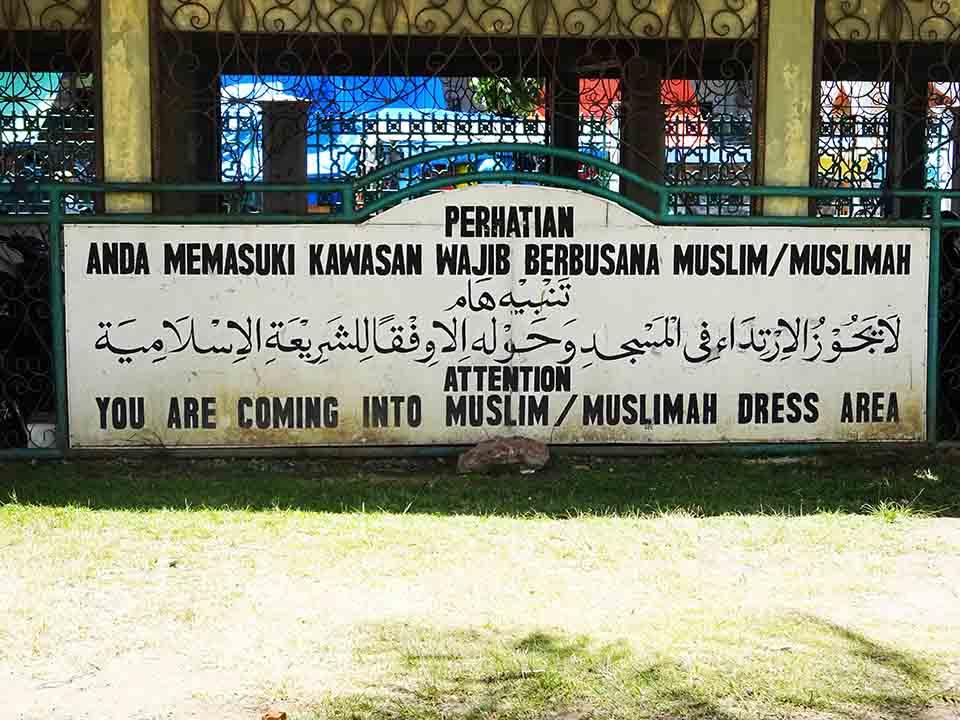 PERHATIAN
ANDA MEMASUKI KAWASAN WAJIB BERBUSANA MUSLIM/MUSLIMAH
تَنْبِيْه هَام
لَا يَجُوْزُ الِارْتِدَاء فِى الْمَسْجِدِ وَحَوْلِهِ إِلَّا وِفْقًا لِلشَّرِيْعَةِ الإِسْلَامِيَّة
ATTENTION
YOU ARE COMING INTO MUSLIM/MUSLIMAH DRESS AREA